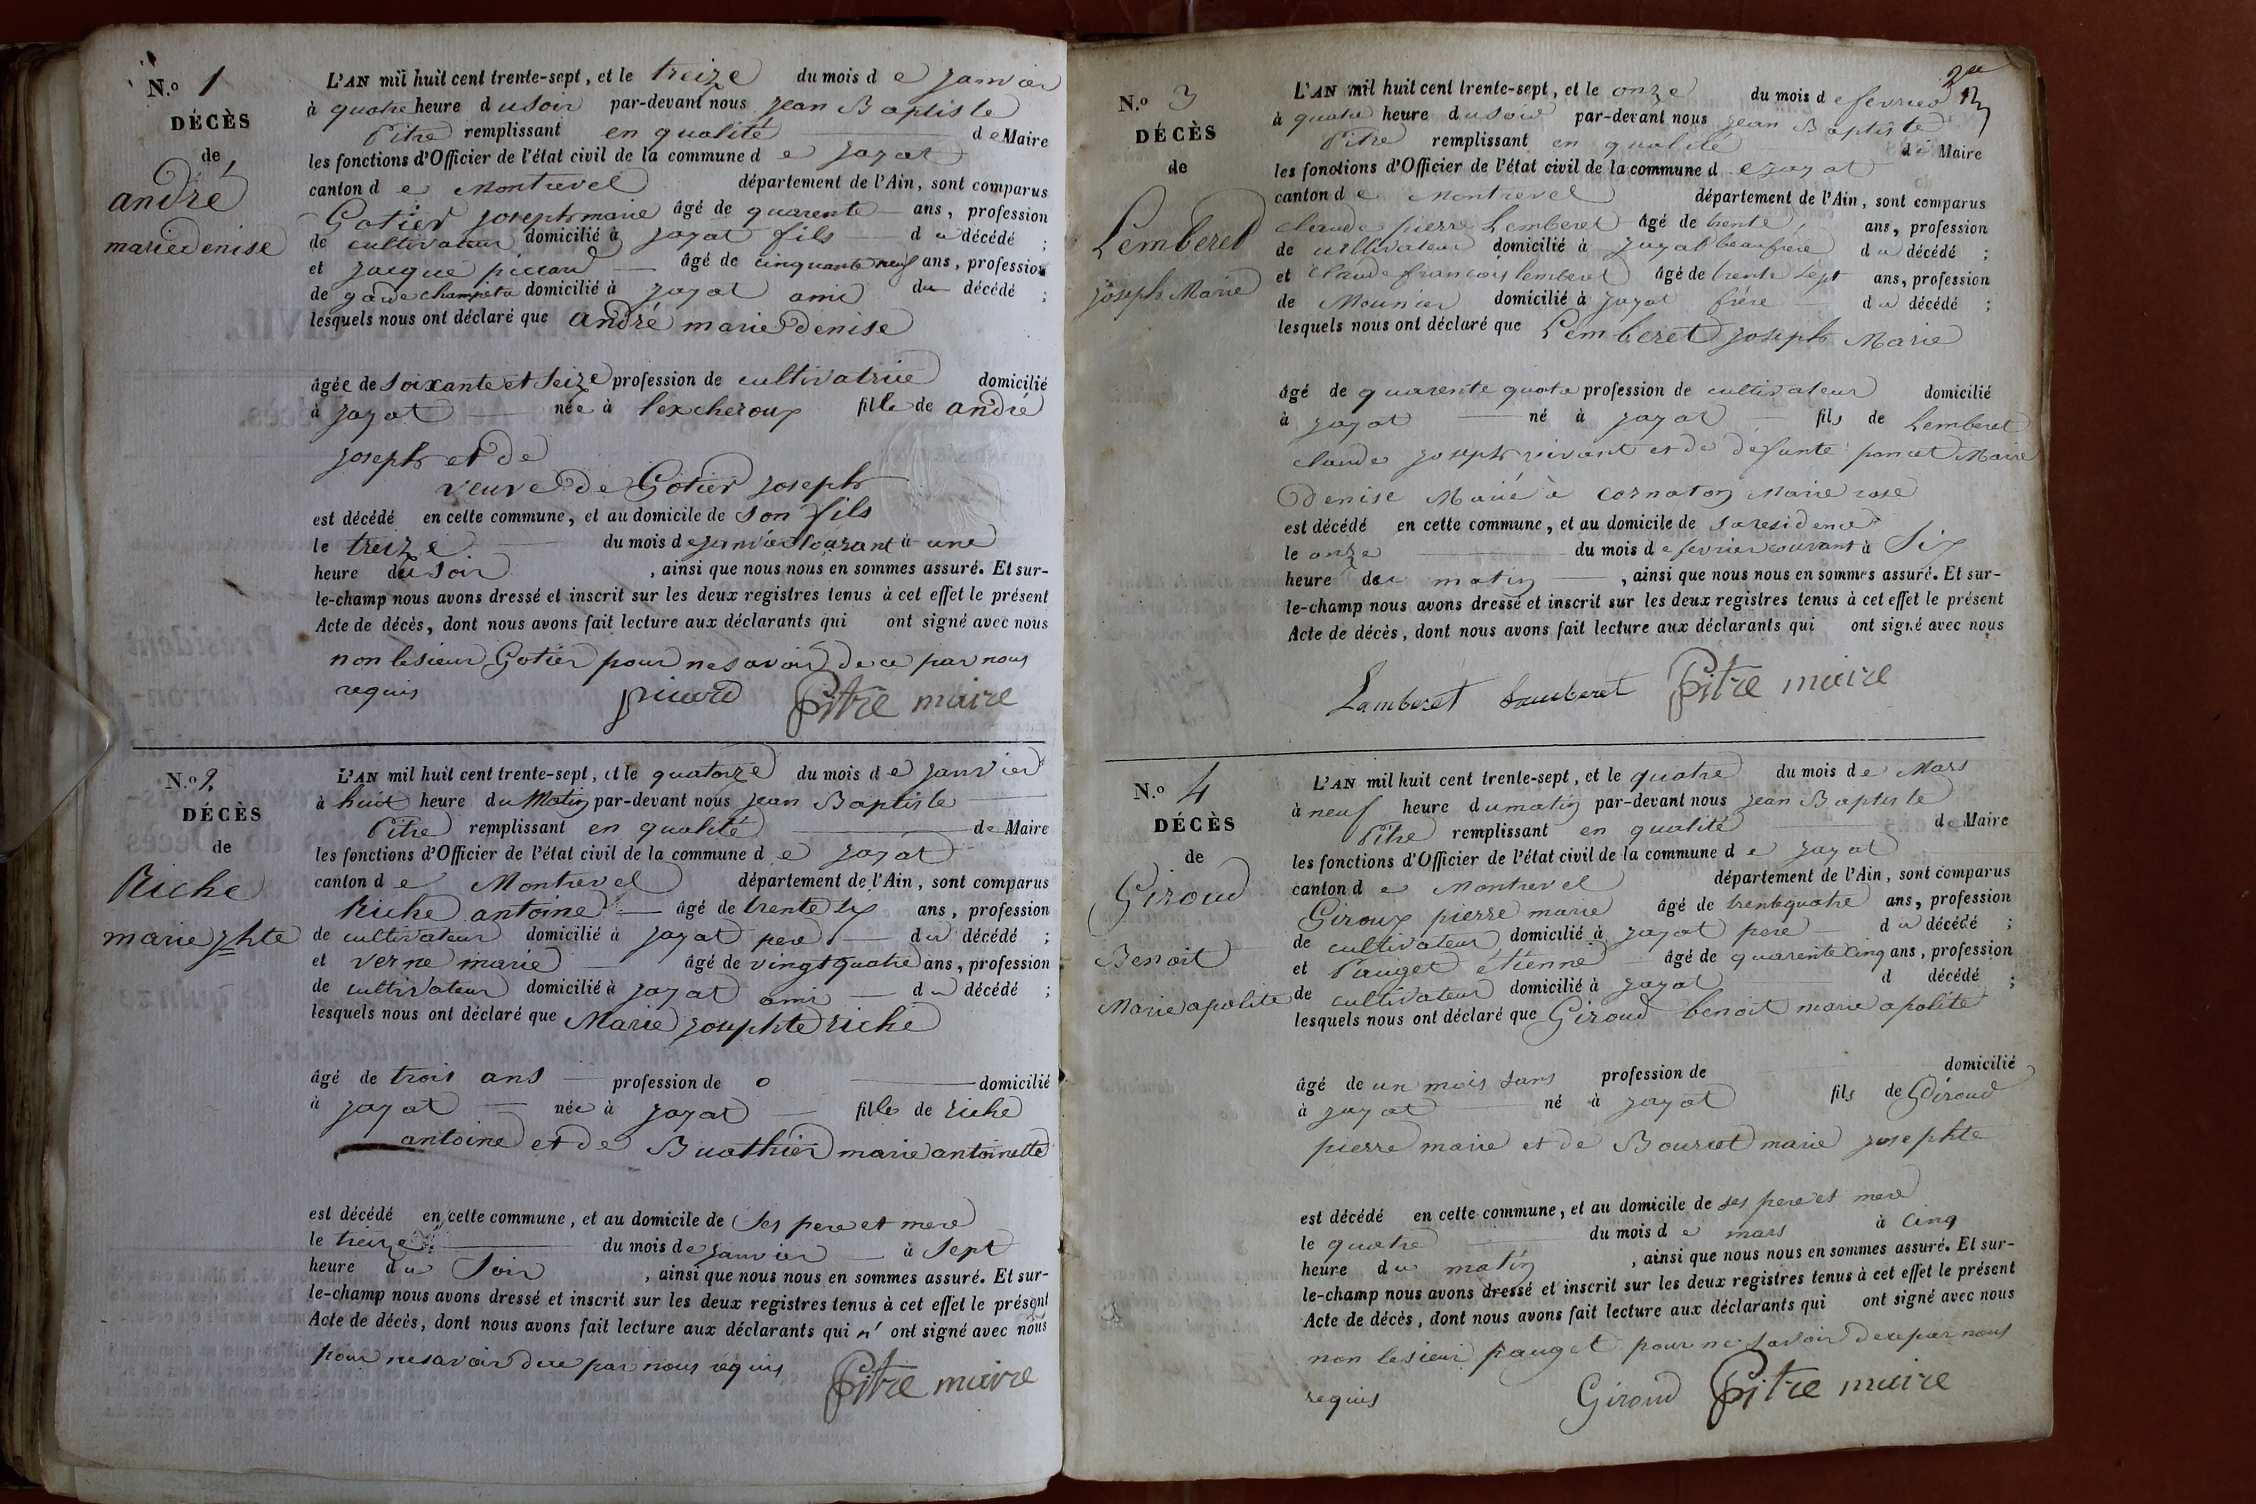 N.º 1
DÉCÈS
de
andré
marie denise
L'AN mil huit cent trente-sept, et le treize du mois de janvier
à quatre heure du soir par-devant nous jean Baptiste
Pitre remplissant en qualité de Maire
les fonctions d'Officier de l'état civil de la commune de jayat
canton de Montrevel département de l'Ain, sont comparus
Gotier joseph marie âgé de quarente ans, profession
de cultivateur domicilié à jayat fils du décédé ;
et jacque piccard âgé de cinquante neuf ans, profession
de garde champetre domicilié à jayat ami du décédé ;
lesquels nous ont déclaré que andré marie denise
âgée de soixante et seize profession de cultivatrice domicilié
à jayat née à lexcheroux fille de andré
joseph et de
veuve de Gotier joseph
est décédé en cette commune, et au domicile de son fils
le treize du mois de janvier courant à une
heure du soir, ainsi que nous nous en sommes assuré. Et sur-
le-champ nous avons dressé et inscrit sur les deux registres tenus à cet effet le présent
Acte de décès, dont nous avons fait lecture aux déclarants qui ont signé avec nous
non le sieur Gotier pour ne savoir de ce par nous
requis picard Pitre maire
N.º 2
DÉCÈS
de
Riche
marie jhte
L'AN mil huit cent trente-sept, et le quatorze du mois de janvier
à huit heure du Matin par-devant nous jean Baptiste
Pitre remplissant en qualité de Maire
les fonctions d'Officier de l'état civil de la commune de jayat
canton de Montrevel département de l'Ain, sont comparus
Riche antoine âgé de trente six ans, profession
de cultivateur domicilié à jayat pere du décédé ;
et verne marie âgé de vingt quatre ans, profession
de cultivateur domicilié à jayat ami du décédé ;
lesquels nous ont déclaré que Marie josephte riche
âgé de trois ans profession de o domicilié
à jayat née à jayat fille de riche
antoine et de Buathier marie antoinette
est décédé en cette commune, et au domicile de ses pere et mere
le treize du mois de janvier à sept
heure du soir, ainsi que nous nous en sommes assuré. Et sur-
le-champ nous avons dressé et inscrit sur les deux registres tenus à cet effet le présent
Acte de décès, dont nous avons fait lecture aux déclarants qui n' ont signé avec nous
pour ne savoir de ce par nous requis Pitre maire
N.º 3
DÉCÈS
de
Lemberet
joseph Marie
L'AN mil huit cent trente-sept, et le onze du mois de fevrier
à quatre heure du soir par-devant nous jean Baptiste
Pitre remplissant en qualité de Maire
les fonctions d'Officier de l'état civil de la commune de jayat
canton de Montrevel département de l'Ain, sont comparus
claude pierre Lemberet âgé de trente ans, profession
de cultivateur domicilié à jayat beaufrere du décédé ;
et claude francois lemberet âgé de trente sept ans, profession
de Mounier domicilié à jayat frére du décédé ;
lesquels nous ont déclaré que Lemberet joseph Marie
âgé de quarente quatre profession de cultivateur domicilié
à jayat né à jayat fils de Lemberet
claude joseph vivant et de defunte poncet Marie
Denise Marié à cornaton Marie rose
est décédé en cette commune, et au domicile de sa residence
le onze du mois de fevrier courant à six
heure du matin, ainsi que nous nous en sommes assuré. Et sur-
le-champ nous avons dressé et inscrit sur les deux registres tenus à cet effet le présent
Acte de décès, dont nous avons fait lecture aux déclarants qui ont signé avec nous
Lamberet Lamberet Pitre maire
N.º 4
DÉCÈS
de
Giroud
Benoit
Marie apolite
L'AN mil huit cent trente-sept, et le quatre du mois de Mars
à neuf heure du matin par-devant nous jean Baptiste
Pitre remplissant en qualité de Maire
les fonctions d'Officier de l'état civil de la commune de jayat
canton de Montrevel département de l'Ain, sont comparus
Giroux pierre marie âgé de trente quatre ans, profession
de cultivateur domicilié à jayat pere du décédé ;
et Pauget étienne âgé de quarente cinq ans, profession
de cultivateur domicilié à jayat d décédé ;
lesquels nous ont déclaré que Giroud benoit marie apolite
âgé de un mois sans profession de domicilié
à jayat né à jayat fils de Giroud
pierre marie et de Bourcet marie josephte
est décédé en cette commune, et au domicile de ses pere et mere
le quatre du mois de mars à cinq
heure du matin, ainsi que nous nous en sommes assuré. Et sur-
le-champ nous avons dressé et inscrit sur les deux registres tenus à cet effet le présent
Acte de décès, dont nous avons fait lecture aux déclarants qui ont signé avec nous
non le sieur pauget pour ne savoir de ce par nous
requis Giroud Pitre maire